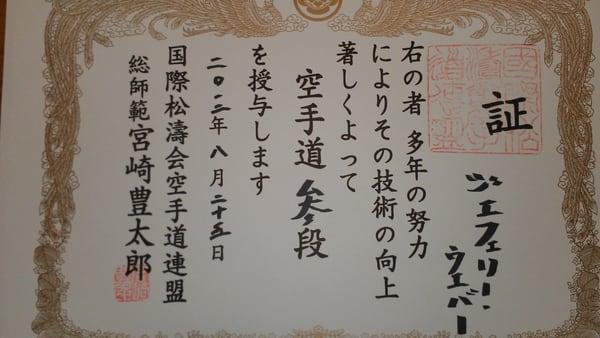 証
ジェフェリー・
ウェバー
右の者 多年の努力
によりその技術の向上
著しくよって
空手道 参段
を授与します
二〇一二年八月二十五日
国際松濤会空手道連盟
総師範 宮崎豊太郎